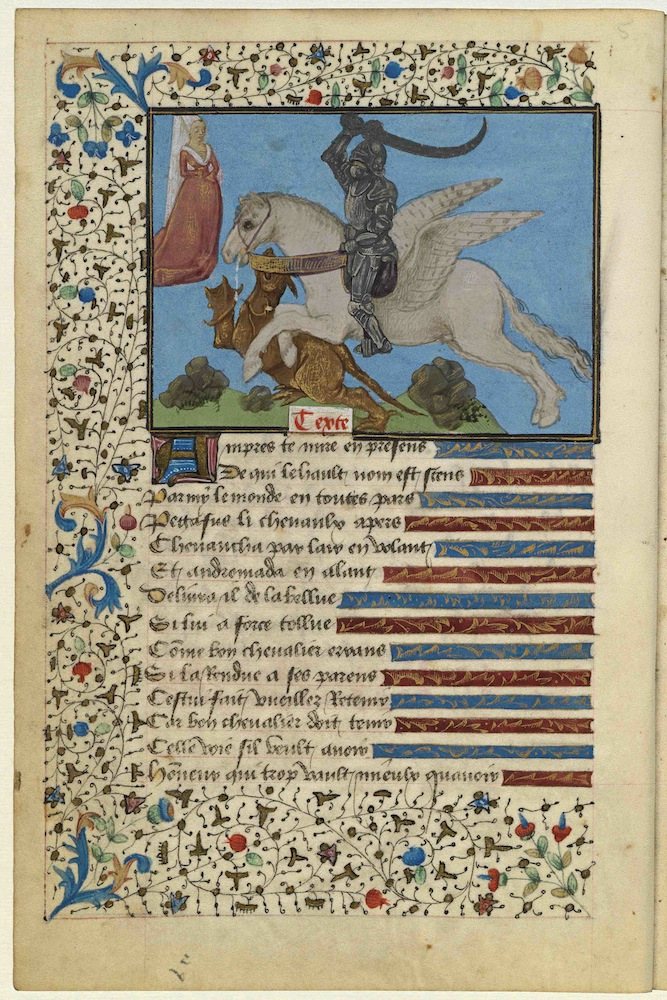 5
Texte
Ampres te mire en perseus
De qui le hault nom est sceus
Parmy le monde en toutes pars
Pegasus li chevaulx apers
Chevaucha par lair en volant
Et andromada en alant
Delivra il de la bellue
Si lui a force tollue
Cōme bon chevalier errans
Si la Rendue a ses parens
Cestui fait vueillez Retenir
Car bon chevalier doit tenir
Celle voie sil veult avoir
Hōneur qui trop vault mieulx quavoir